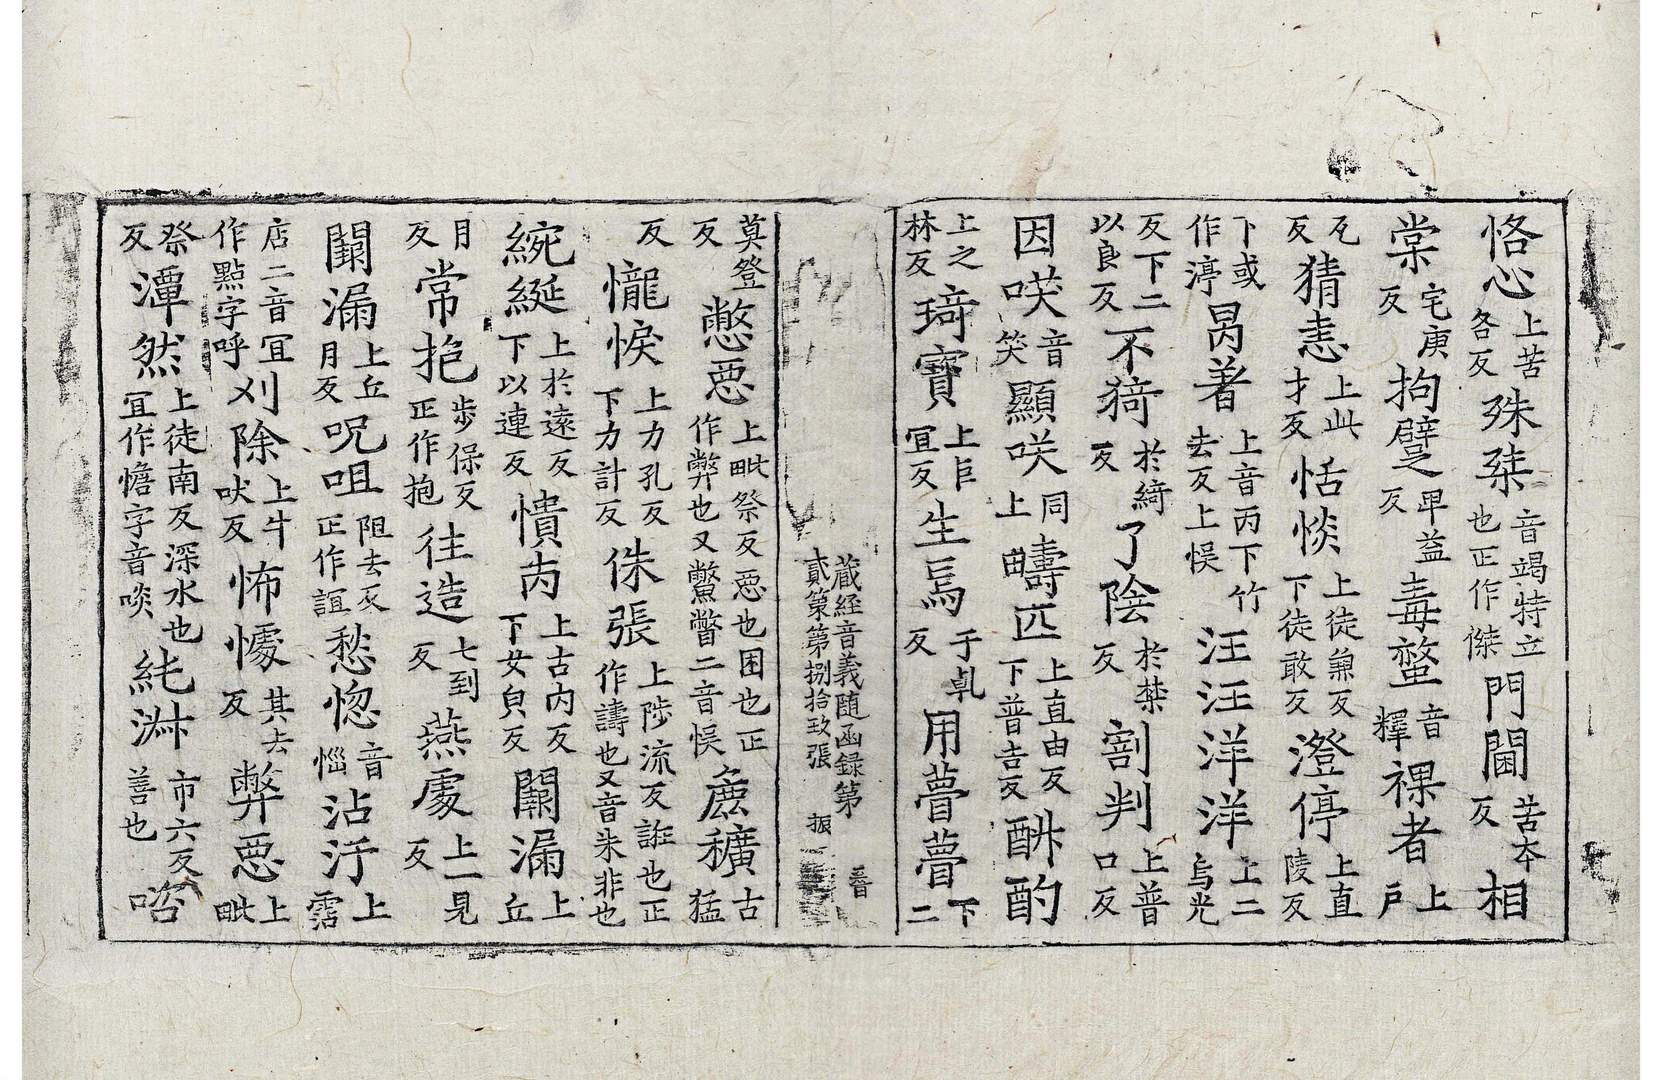 恪心上苦各反殊桀音竭特立也正作傑門閫苦本反相
棠宅庚反拘躄卑益反毒螫音釋裸者上戶
瓦反猜恚上此才反恬惔上徒兼反下徒敢反澄停上直陵反
下或作渟曷著上音丙下竹去反上悮汪汪洋洋上二烏光
反下二以良反不猗於綺反了陰於禁反割判上普口反
因唉音笑顯咲同上疇匹上直由反下普吉反酣酌
上之林反琦寶上巨冝反生焉于乹反用瞢瞢下二
藏經音義随函録第貳第第捌拾玖張 振
莫登反憋恶上毗祭反恶也困也正作弊也又鷩瞥二音悮麁穬古猛
反儱悷上力孔反下力計反侏張上陟流反誑也正作譸也又音朱非也
綩綖上於遠反下以連反憒丙上古内反下女皃反闚漏上丘
月反常抱步保反正作抱往造七到反燕處上一見反
闚漏上丘月反呪咀阻去反正作詛愁惚音惱沾汙上霑
店二音冝作點字呼刈除上牛吠反怖懅其去反弊恶上毗
祭反潭然上徒南反深水也冝作憺字音啖純淋市六反善也㗒